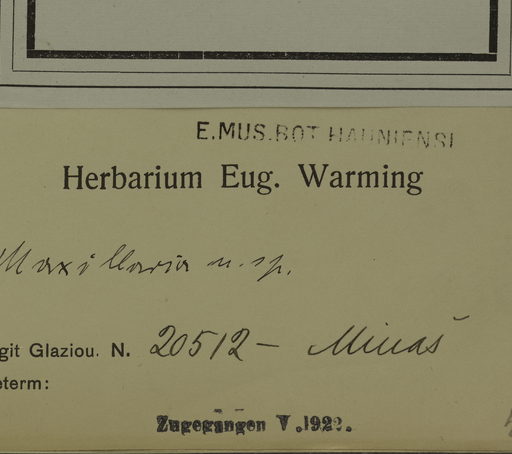 E.MUS.BOT HAUNIENSI
Herbarium Eug. Warming
Maxillaria n. sp.
git Glaziou. N. 20512 — Minas
eterm:
Zugegangen V.192